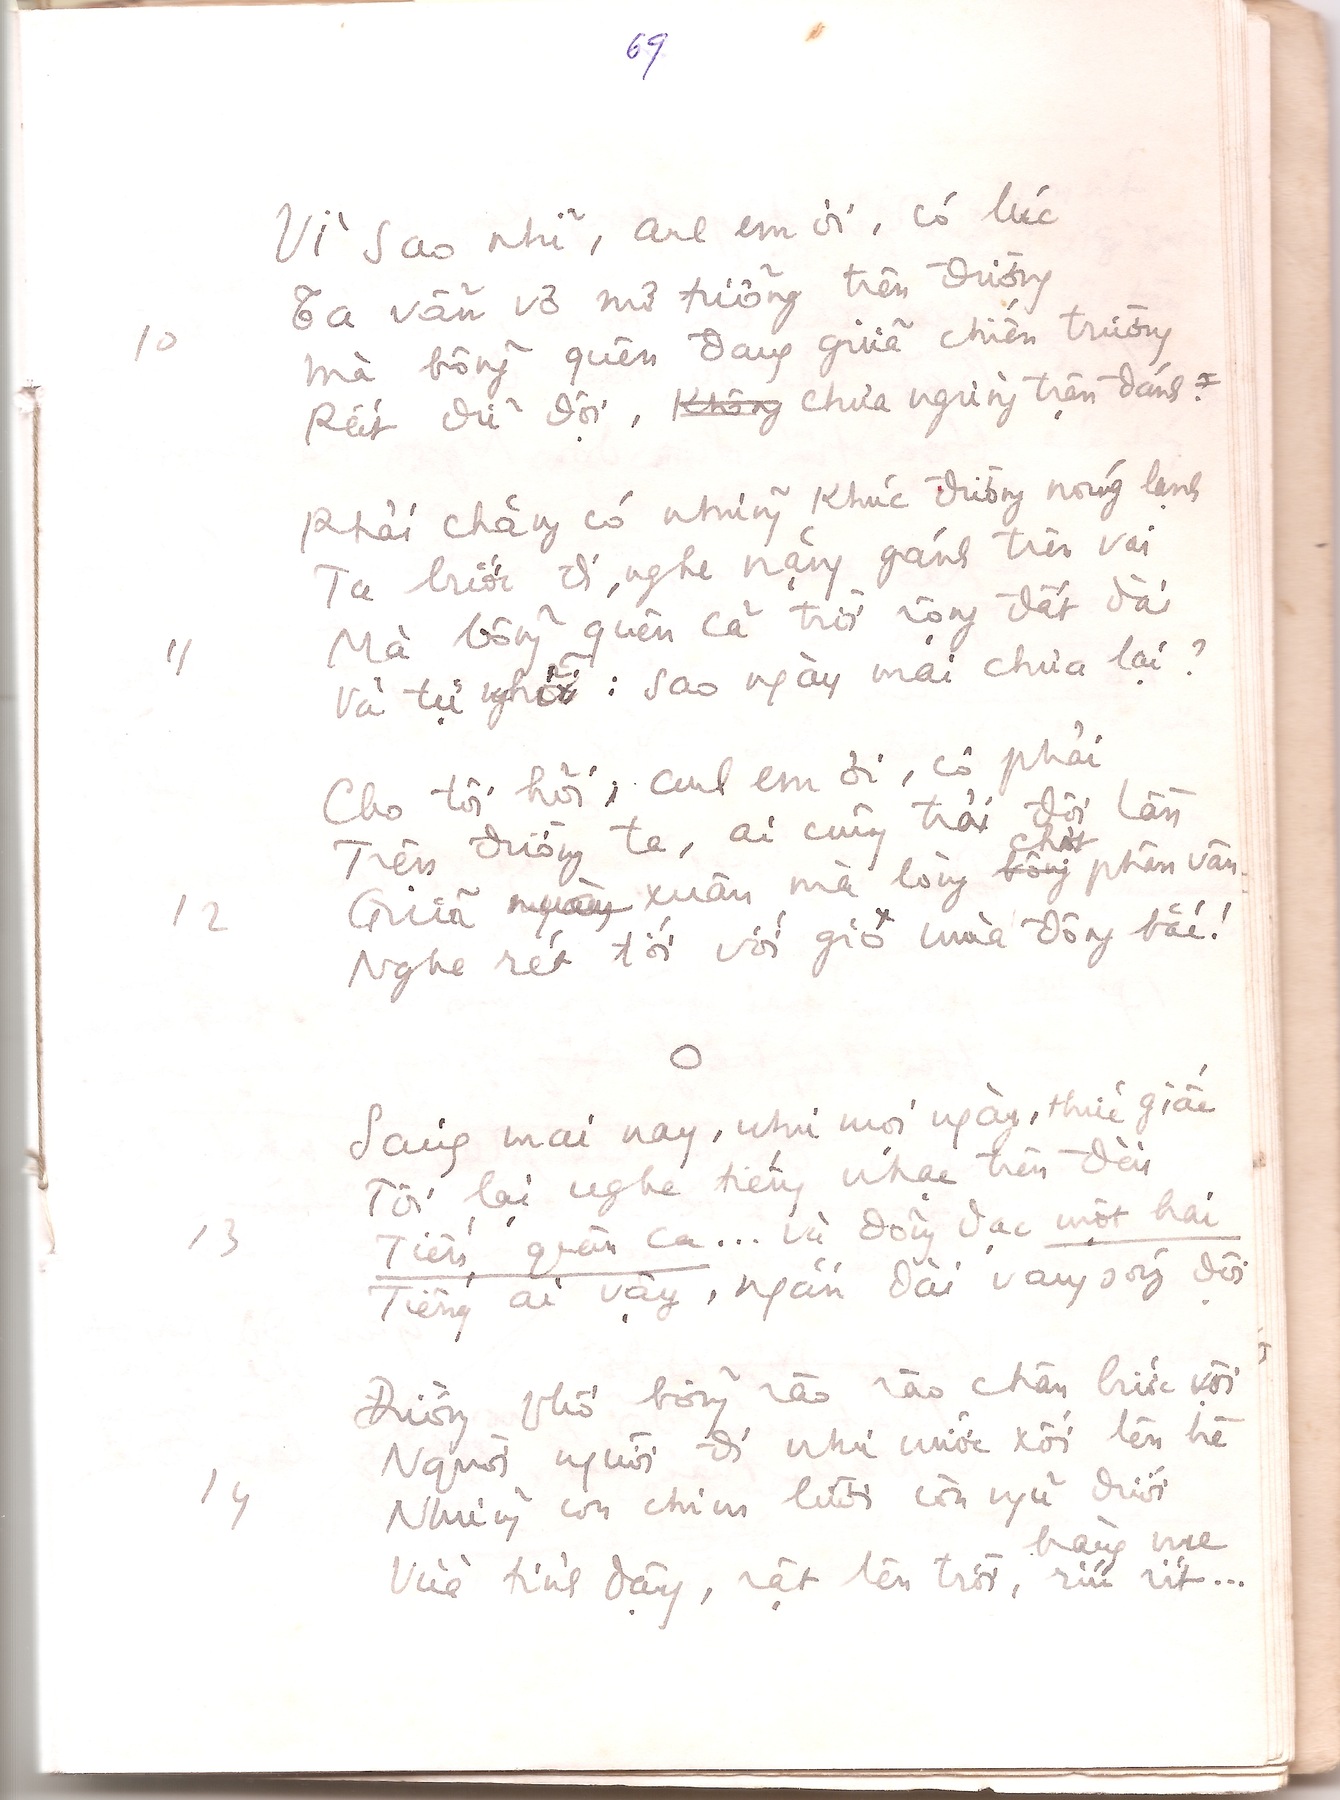 69
Vì sao nhỉ, anh em ơi, có lúc
Ta vẫn vơ mơ tưởng trên đường
10
Mà bỗng quên đang giữa chiến trường
Rất dữ dội, Không chưa ngừng trận đánh?
Phải chăng có những khúc đường nóng lạnh
Ta bước đi, nghe nặng gánh trên vai
Mà bỗng quên cả trời rộng đất dài
11
Và tự hỏi: sao ngày mai chưa lại?
Cho tôi hỏi, anh em ơi, có phải
Trên đường ta, ai cũng trải đôi lần
chợt
12
Giữa ngày xuân mà lòng bỗng phân vân
Nghe rét tới với gió mùa đông bắc!
Sáng mai nay, như mọi ngày, thức giấc
Tôi lại nghe tiếng nhạc trên đài
13
Tiến quân ca... và dõng dạc một hai
Tiếng ai vậy, ngắn dài vang sóng dội
Đường phố bỗng rào rào chân bước vội
Người người đi như nước xối lên hè
14
Những con chim lười còn ngủ dưới
hàng me
Vừa tỉnh dậy, rật lên trời, ríu rít...